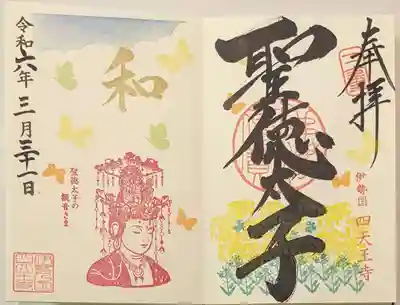 奉拝
聖徳太子
伊勢国 四天王寺
和
聖徳太子の
観音さま
令和六年三月三十一日